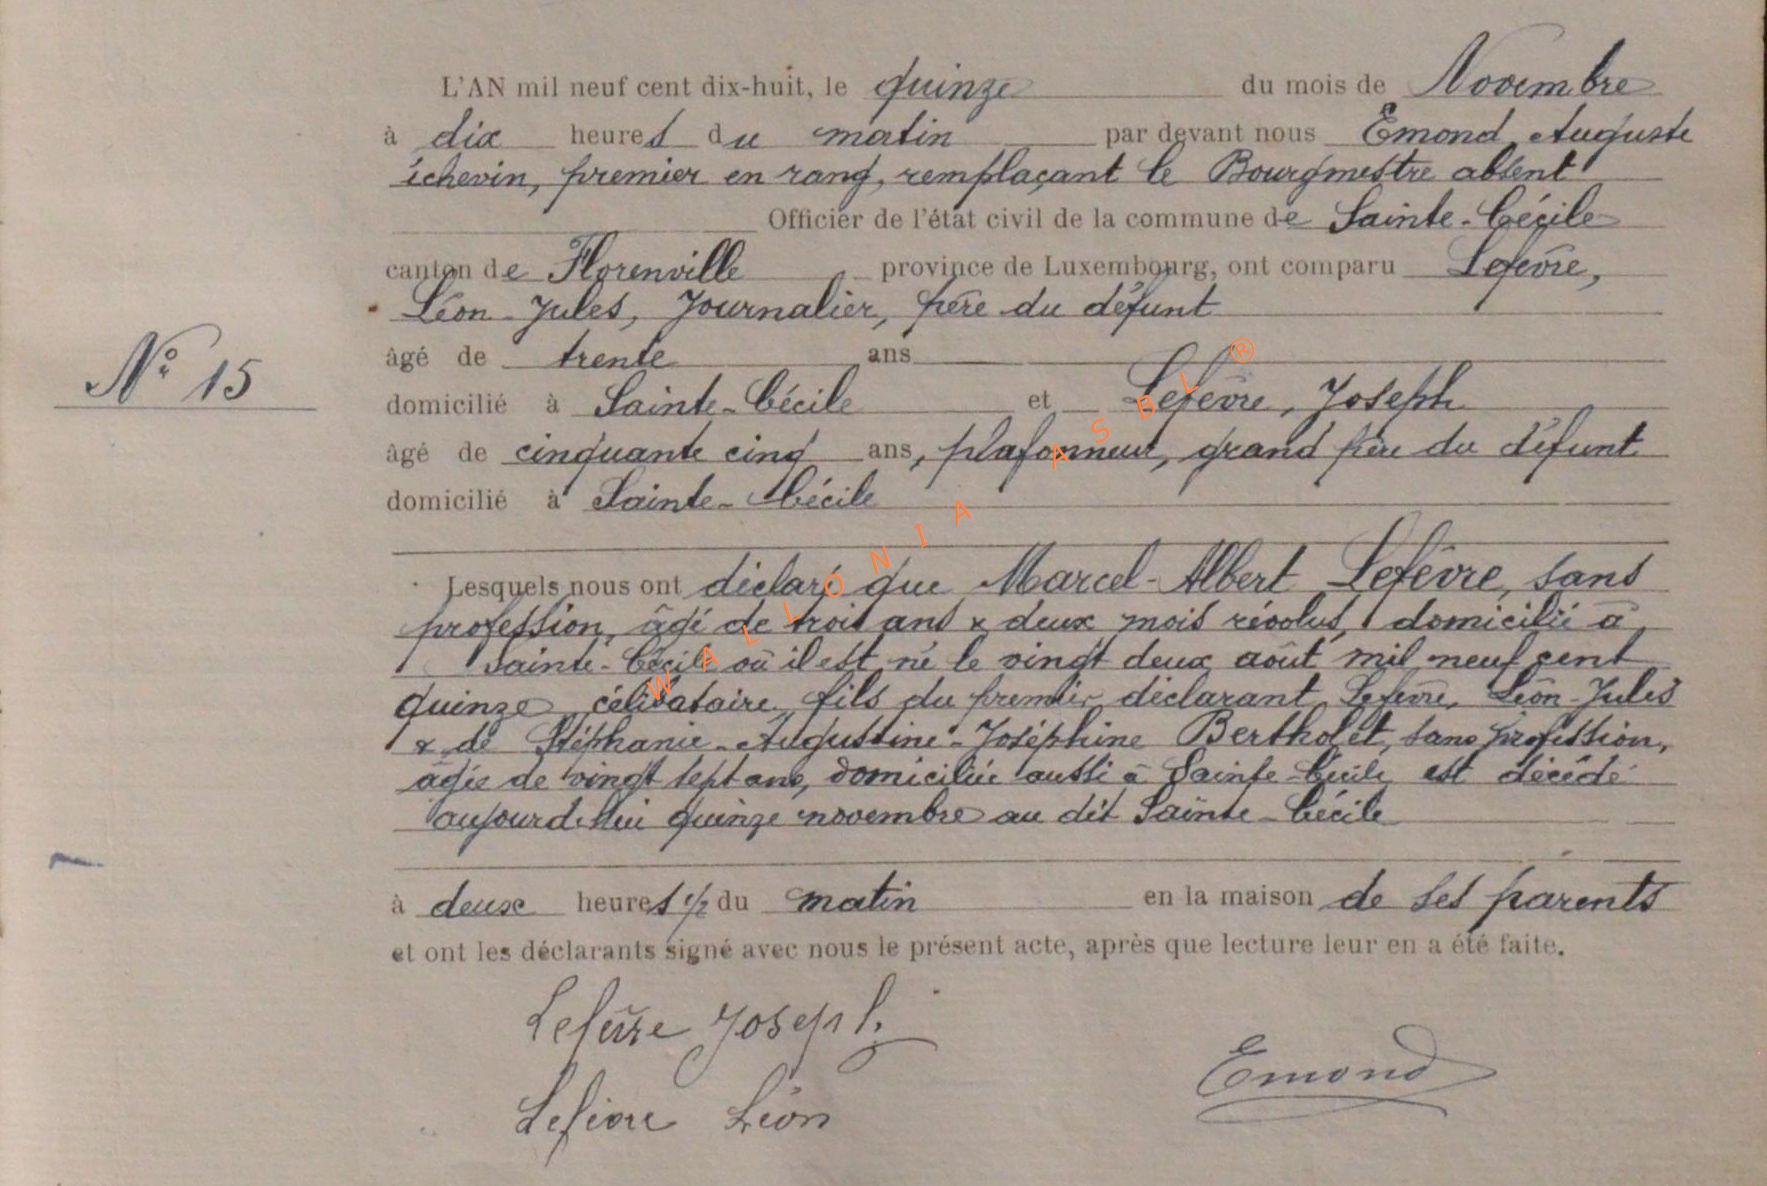 L'AN mil neuf cent dix-huit, le quinze du mois de Novembre
à dix heures du matin par devant nous Emond, Auguste
échevin, premier en rang, remplaçant le Bourgmestre absent
Officier de l'état civil de la commune de Sainte-Cécile
canton de Florenville province de Luxembourg, ont comparu Lefèvre,
Léon-Jules, Journalier, père du défunt
âgé de trente ans
N° 15
domicilié à Sainte-Cécile et Lefèvre, Joseph
âgé de cinquante cinq ans, plafonneur, grand père du défunt
domicilié à Sainte-Cécile
Lesquels nous ont déclaré que Marcel-Albert Lefèvre, sans
profession, âgé de trois ans & deux mois révolus, domicilié à
Sainte-Cécile où il est né le vingt deux août mil neuf cent
quinze, célibataire, fils du premier déclarant Lefèvre, Léon-Jules
& de Stéphanie-Augustine-Joséphine Bertholet, sans profession,
âgée de vingt sept ans, domiciliée aussi à Sainte-Cécile, est décédé
aujourd'hui quinze novembre au dit Sainte-Cécile
à deux heures 1/2 du matin en la maison de ses parents
et ont les déclarants signé avec nous le présent acte, après que lecture leur en a été faite.
Lefèvre Joseph
Emond
Lefèvre Léon
WALLONIA ASBL ®